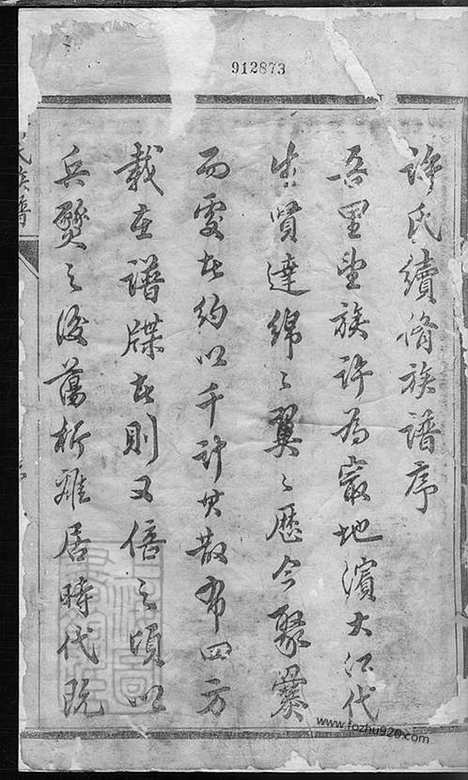 912873
許氏續脩族譜序
吾里望族許為最地濱大江代
生賢達綿綿翼翼歷今聚爨
而處者約以千計其散布四方
載在譜牒者則又倍之頃以
兵燹之後蕩析離居時代既
氏族譜
www.fozhu920.com